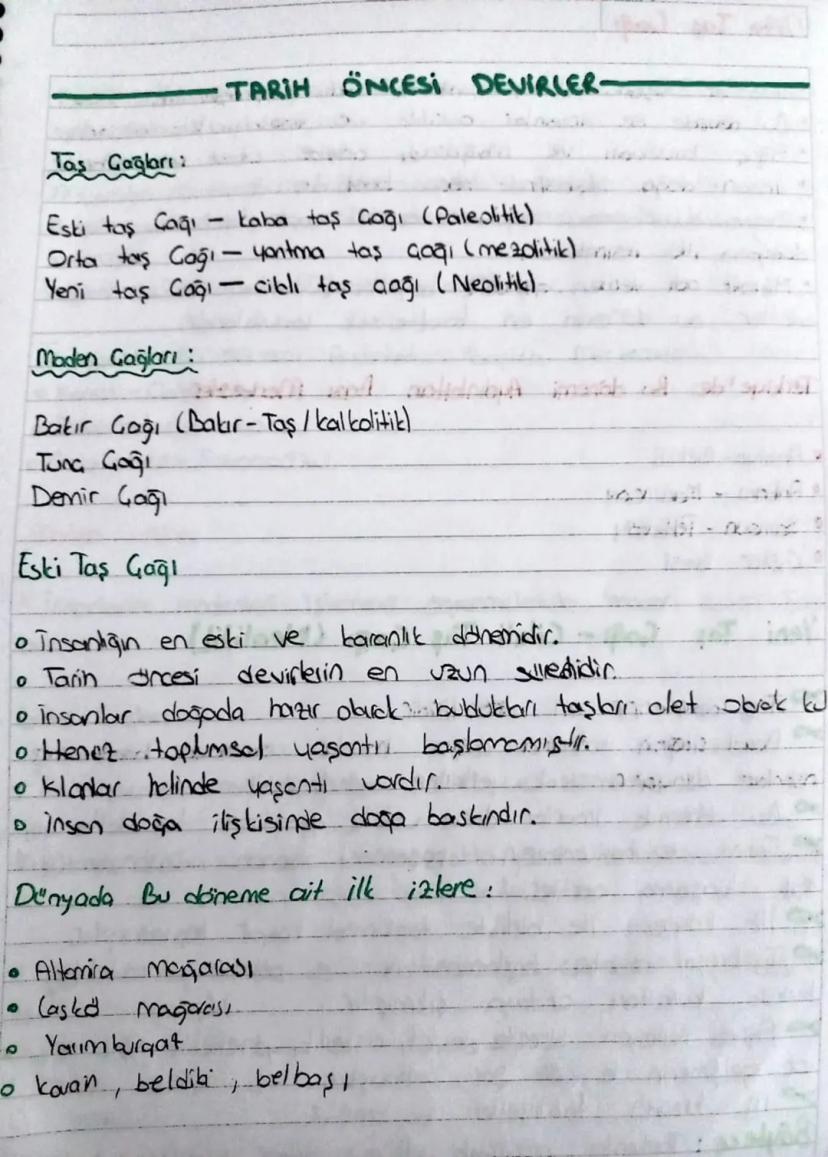 TARİH ÖNCESİ DEVİRLER
Taş Çağları:
Eski taş Çağı - kaba taş Çağı (Paleolitik)
Orta taş Çağı - yontma taş çağı (mezolitik)
Yeni taş Çağı - cilalı taş çağı (Neolitik).
Maden Çağları:
Bakır Çağı (Bakır-Taş / kalkolitik)
Tunç Çağı
Demir Çağı
Eski Taş Çağı
İnsanlığın en eski ve karanlık dönemidir.
Tarih öncesi devirlerin en uzun süresidir.
insanlar doğada hazır olarak buldukları taşları alet olarak
Henüz toplumsal yaşantı başlamamıştır.
Klanlar halinde yaşantı vardır.
insan doğa ilişkisinde doğa baskındır.
Dünyada Bu döneme ait ilk izlere:
Altamira mağarası
Laskö mağarası
Yarımburgaz
kavain, beldibi, belbaşı